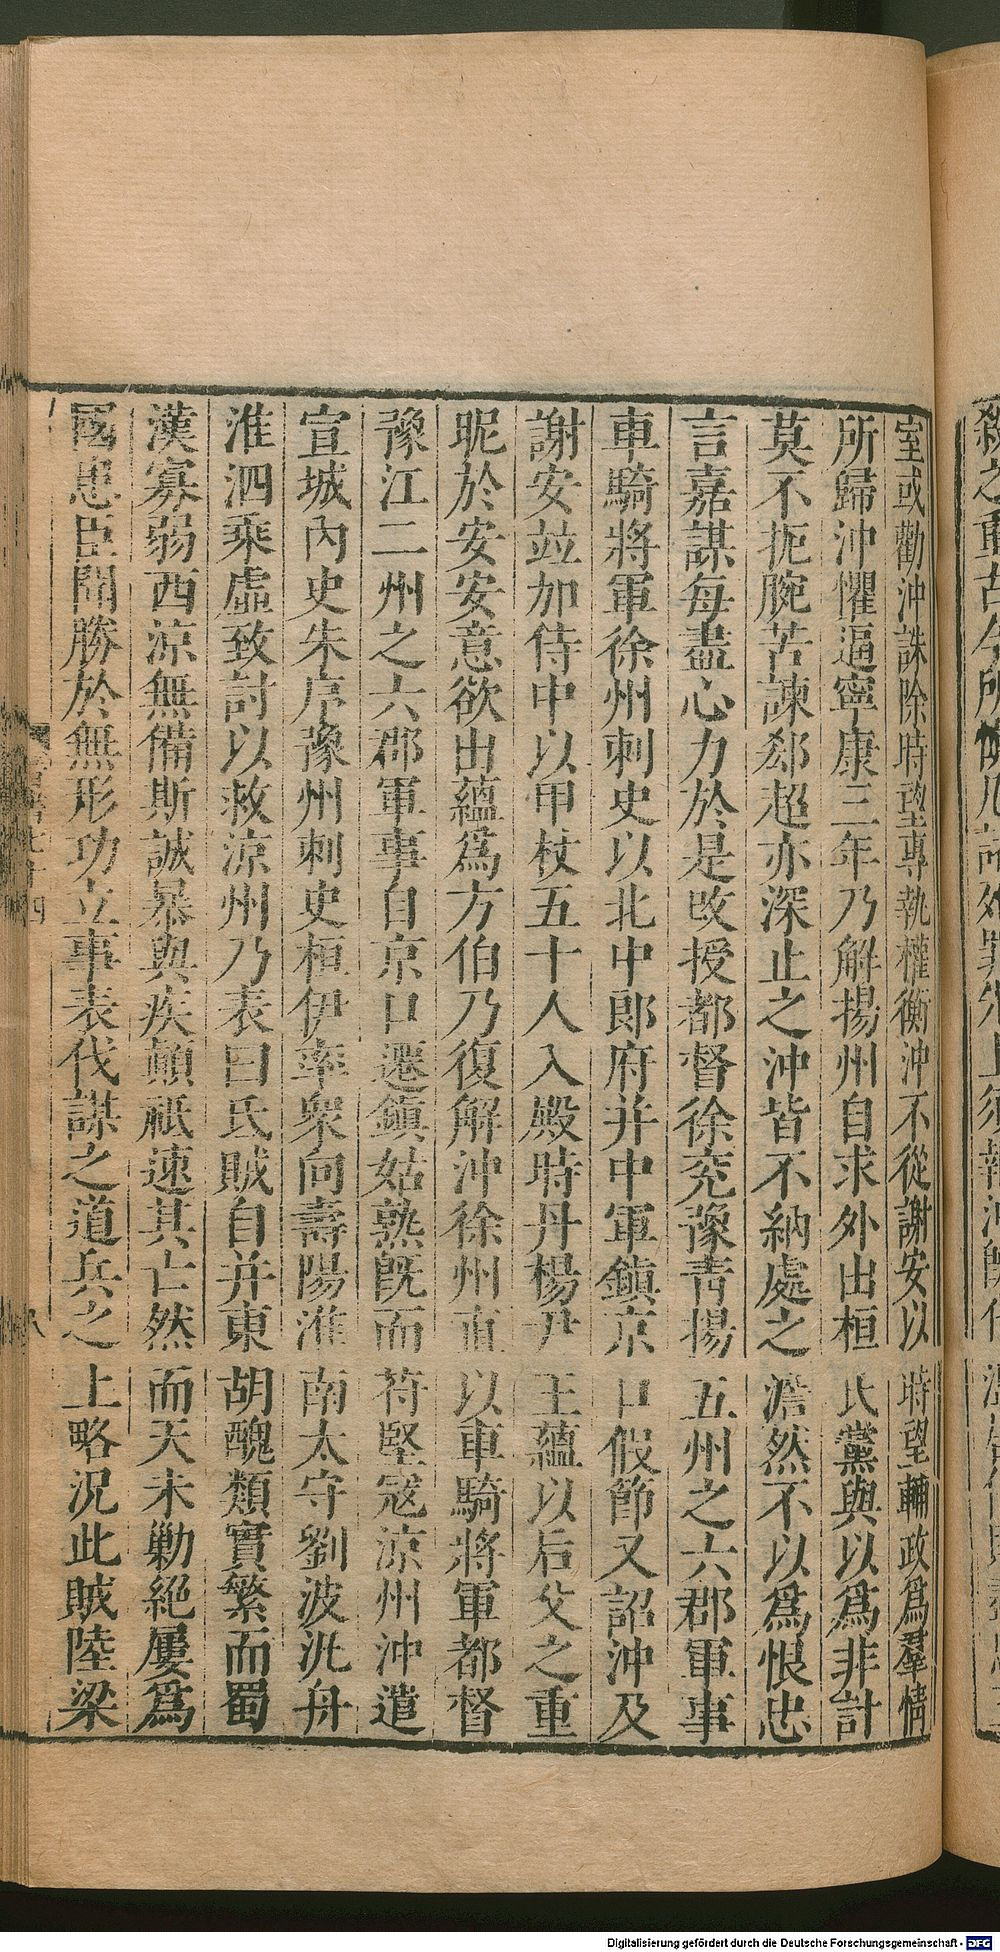 室或勸沖誅除時望專執權衡沖不從謝安以時望輔政爲羣情
所歸沖懼逼寧康三年乃解揚州自求外出桓氏黨與以爲非計
莫不扼腕苦諫郄超亦深止之沖皆不納處之澹然不以爲恨忠
言嘉謀每盡心力於是改授都督徐兖豫青揚五州之六郡軍事
車騎將軍徐州刺史以北中郎府并中軍鎮京口假節又詔沖及
謝安竝加侍中以甲杖五十人入殿時丹楊尹王蘊以后父之重
昵於安安意欲出蘊爲方伯乃復解沖徐州直以車騎將軍都督
豫江二州之六郡軍事自京口遷鎮姑熟既而苻堅寇涼州沖遣
宣城內史朱序豫州刺史桓伊率衆向壽陽淮南太守劉波汎舟
淮泗乘虛致討以救涼州乃表曰氐賊自并東胡醜類實繁而蜀
漢寡弱西涼無備斯誠暴與疾顛祇速其亡然而天未勦絕屢爲
國患臣聞勝於無形功立事表伐謀之道兵之上略況此賊陸梁
Digitalisierung gefördert durch die Deutsche Forschungsgemeinschaft - DFG